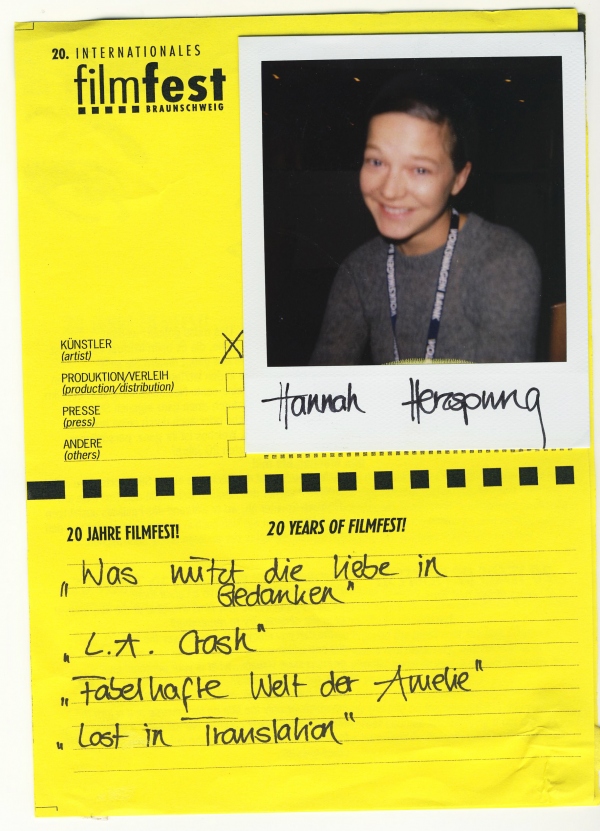 20. INTERNATIONALES
filmfest
BRAUNSCHWEIG
KÜNSTLER
(artist)
X
PRODUKTION/VERLEIH
(production/distribution)
PRESSE
(press)
ANDERE
(others)
VOLKSWAGEN BANK
Hannah Herzsprung
20 JAHRE FILMFEST!
20 YEARS OF FILMFEST!
„Was nützt die Liebe in
Gedanken"
„L.A. Crash"
„Fabelhafte Welt der Amelie"
„Lost in Translation"